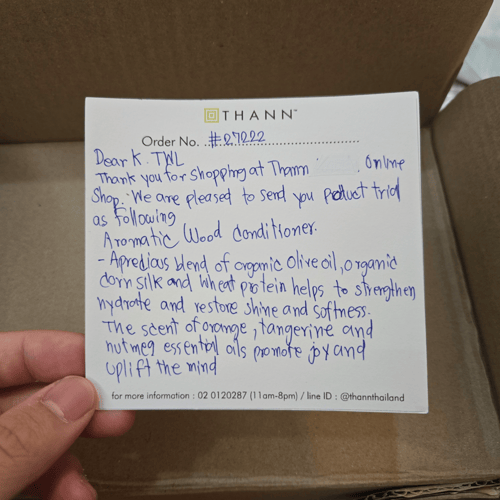 THANN™
Order No. #07022
Dear K. TWL
Thank you for shopping at Thann Online
Shop. We are pleased to send you product trial
as following
Aromatic Wood Conditioner.
- A predious blend of organic Olive oil, organic
corn silk and wheat protein helps to strengthen
hydrate and restore shine and softness.
The scent of orange, tangerine and
nutmeg essential oils promote joy and
uplift the mind
for more information : 02 0120287 (11am-8pm) / line ID : @thannthailand